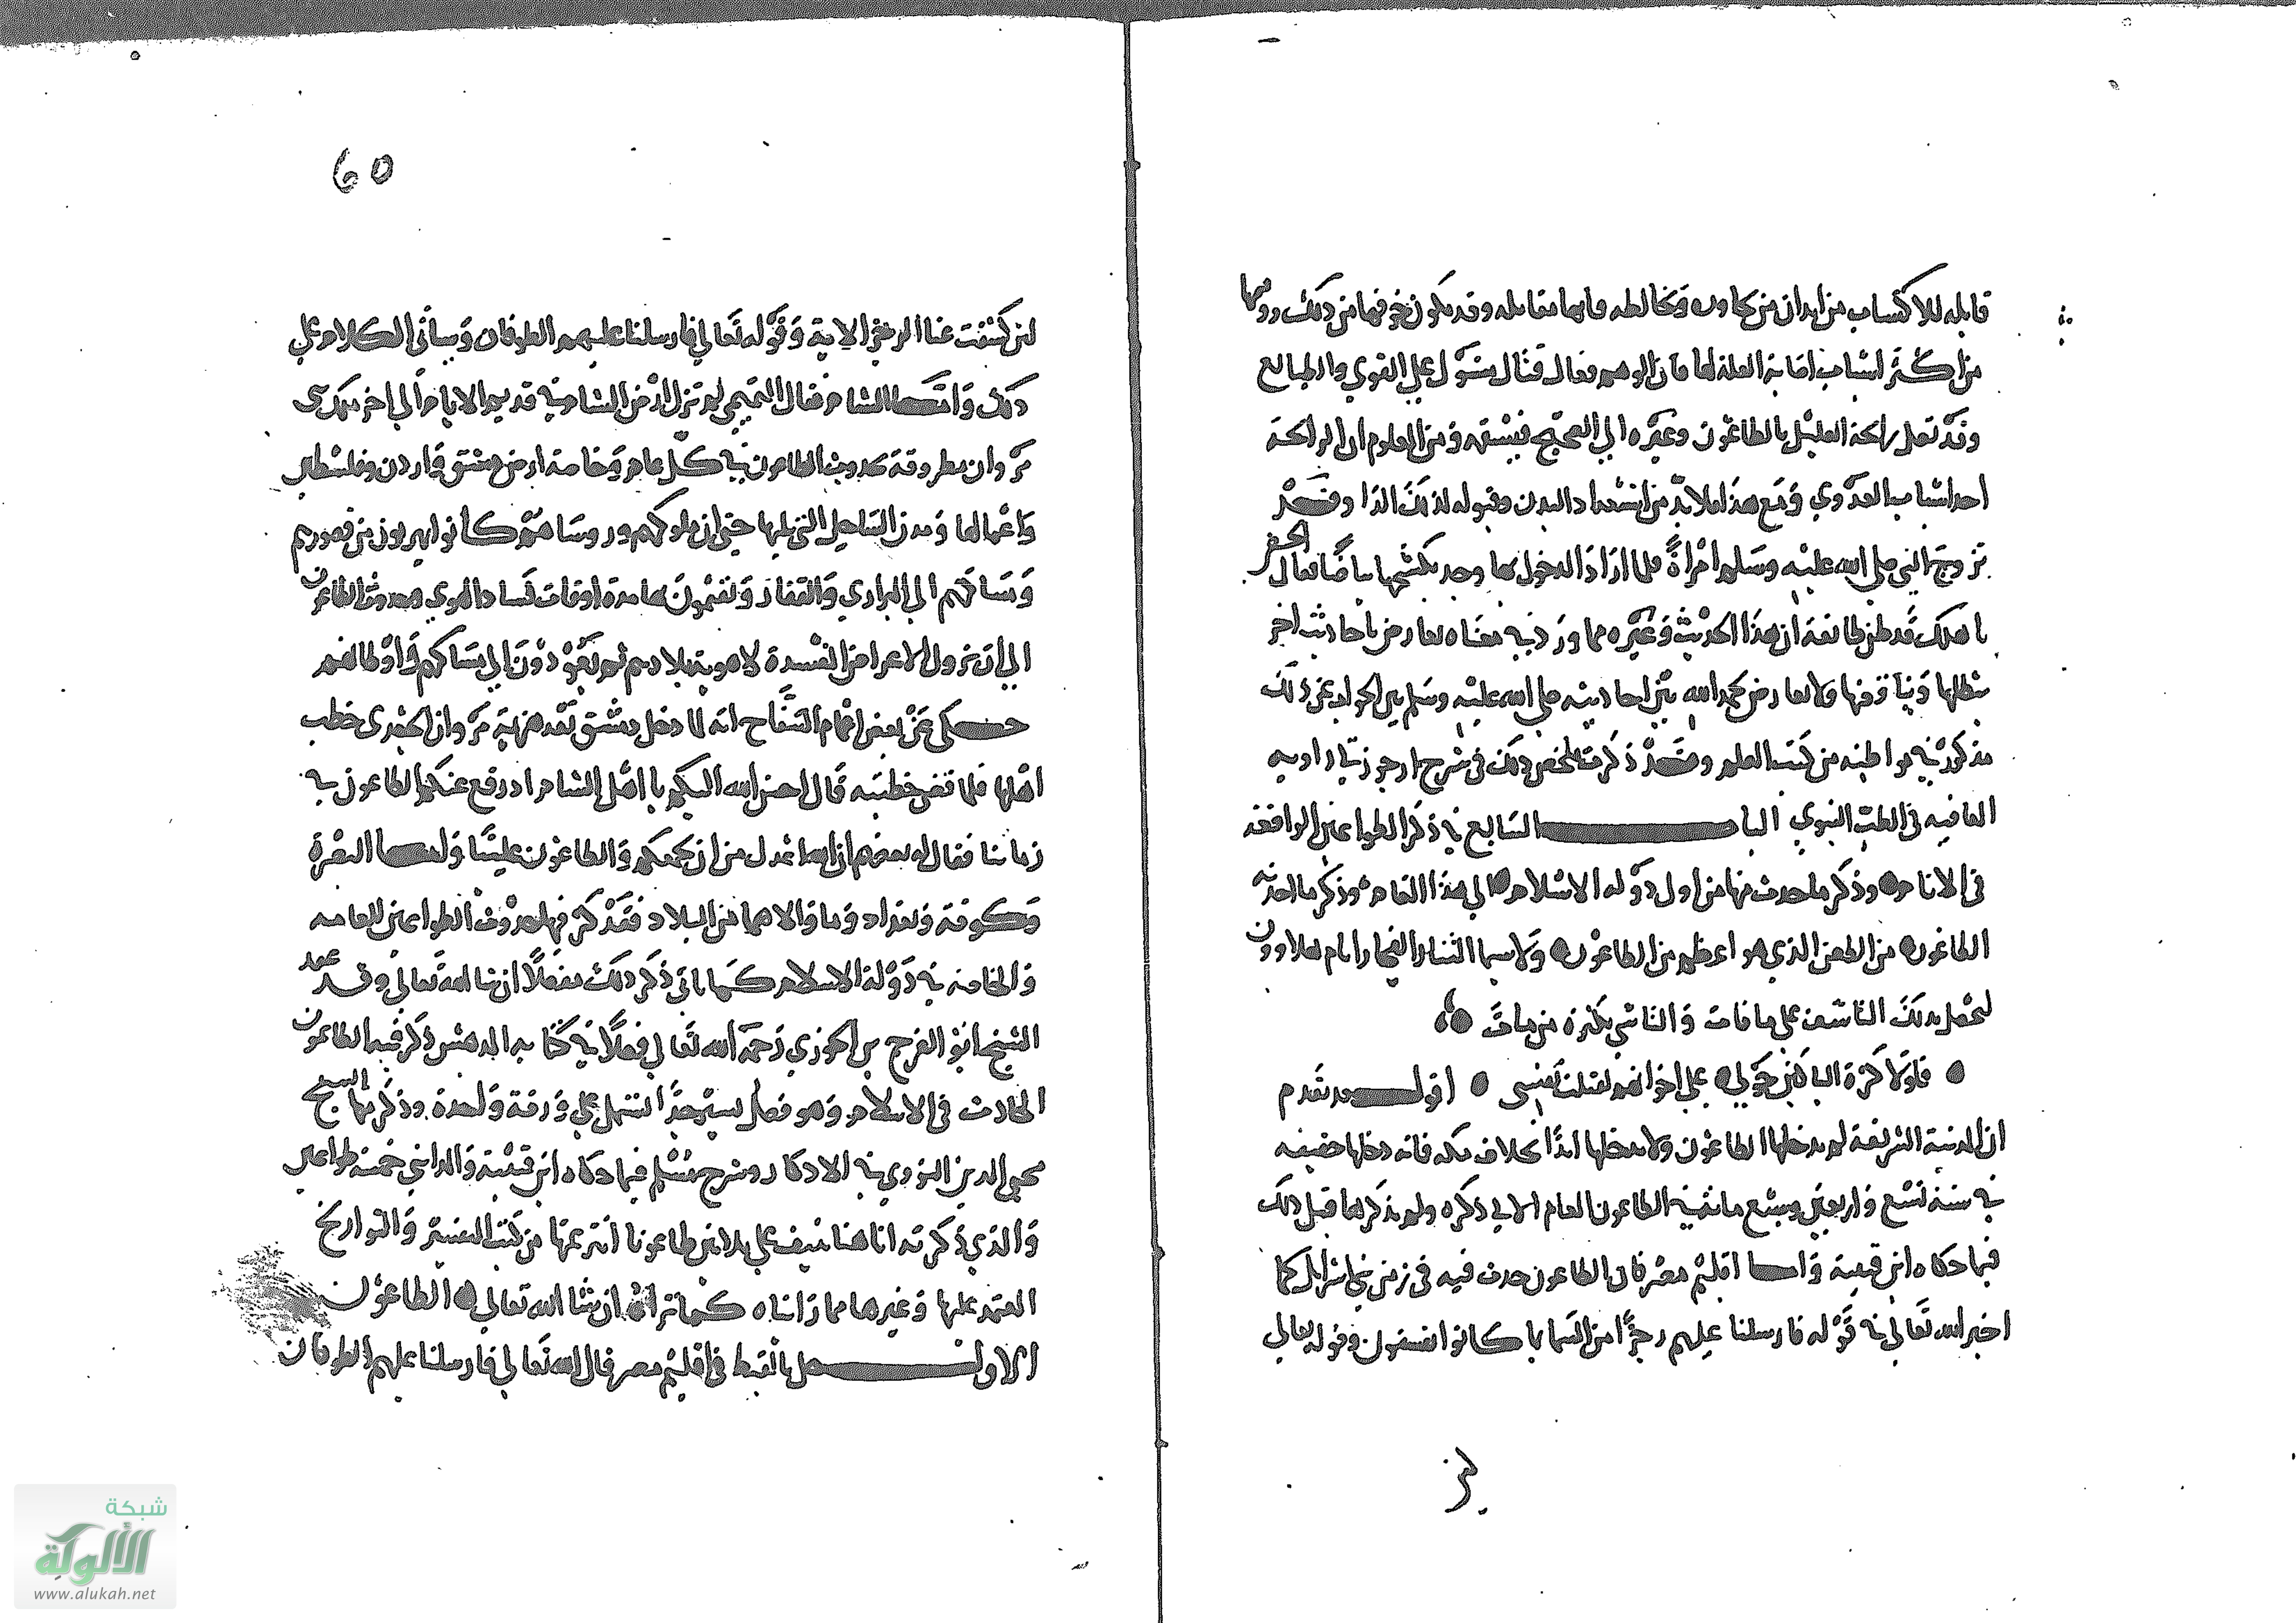 قابله للاكتساب من ابدان من يجاوره ويخالطه فانها مقابله وقد يكون خوفها من ذلك ووهمها
من اكثر اسباب اصابة العلة لها فان الوهم فعال قتال مستول على القوي والطبايع
وقد تصل رائحة العليل بالطاعون وغيره الي الصحيح فيستقمه ومن المعلوم ان الرائحة
احد اسباب العدوي ومع هذا فلا بد من استعداد البدن وقبوله لذلك الدا وقد
تزوج النبي صلى الله عليه وسلم امراة فلما اراد الدخول بها وجد بكشحها بياضا فقال الحقي
باهلك قد ظن طائفة ان هذا الحديث وغيره مما ورد في معناه معارض باحاديث اخر
تبطلها وتناقضها ولا تعارض بحمد الله بين احاديثه صلى الله عليه وسلم بين الجواب عن ذلك
مذكور في مواطنه من كتب العلم وقد ذكرت ملخص ذلك في شرح ارجوزتي الراوية
العافيه في الطب النبوي الباب السابع في ذكر الطواعين الواقعة
في الانام وذكر ما حدث منها من اول دولة الاسلام الي هذا العام وذكر ما احدثه
الطاعون من الطعن الذي هو اعظم من الطاعون ولا سيما التنار الفجار ايام هلاوون
ليحصل بذلك التاسف على ما فات والتاسي بكثرة من مات
فلولا كثرة الباكين حولي على اخوانهم لقتلت نفسي اقول قد تقدم
ان المدينة الشريفة لم يدخلها الطاعون ولا يدخلها ابدا بخلاف مكه فانه دخلها حقيقه
في سنة تسع واربعين وسبع مائة في الطاعون العام الاتي ذكره ولم يذكرها قبل ذلك
فيما حكاه ابن قتيبة واما اقليم مصر فان الطاعون حدث فيه في زمن بني اسرائيل كما
اخبر الله تعالي في قوله فارسلنا عليهم رجزا من السما بما كانوا يفسقون وقوله تعالي
لئن
60
لئن كشفت عنا الرجز الاية وقوله تعالي فارسلنا عليهم الطوفان وسيأتي الكلام علي
ذلك واما الشام فقال التميمي لم تزل ارض الشام في قديم الايام الي اخر ملك بني
مروان مطروقة بحدوث الطاعون في كل عام وخاصة ارض دمشق واردن وفلسطين
واعمالها ومدن الساحل التي تليها حتي ان ملوكهم وروساهم كانوا يهربون من قصورهم
ومساكنهم الي البراري والقفار ويقيمون بها مدة اوقات فساد الهوي وحدوث الطاعون
الي ان تزول الاعراض المفسدة لاهوية بلادهم ثم يعودون الي مساكنهم واوطانهم
حكي عن بعض امام السفاح انه لما دخل دمشق بعد هزيمة مروان الجعدي خطب
اهلها فلما قضي خطبته قال احسن الله اليكم يا اهل الشام اذ رفع عنكم الطاعون في
زماننا فقال له بعضهم ان الله اعدل من ان يجمعكم والطاعون علينا واما البصرة
وكوفة وبغداد وما والاهما من البلاد فقد كثر فيها حدوث الطواعين العامه
والخاصة في دولة الاسلام كما ياتي ذكر ذلك مفصلا ان شا الله تعالي وقد عقد
الشيخ ابو الفرج بن الجوزي رحمه الله تعالي فصلا في كتابه المدهش ذكر فيه الطاعون
الحادث في الاسلام وهو فصل يسير جدا اشتمل علي ورقة واحدة وذكر منها الشيخ
محيي الدين النووي في الاذكار وشرح مسلم فيما حكاه ابن قتيبة والمدايني خمسة طواعين
والذي ذكرته انا هنا ينيف علي ثلاثين طاعونا انتزعتها من كتب التفسير والتواريخ
المعتمد عليها وغيرها مما رايناه كما تراه ان شا الله تعالي الطاعون
الاول حل بالقبط في اقليم مصر قال الله تعالي فارسلنا عليهم الطوفان
شبكة
الألوكة
www.alukah.net